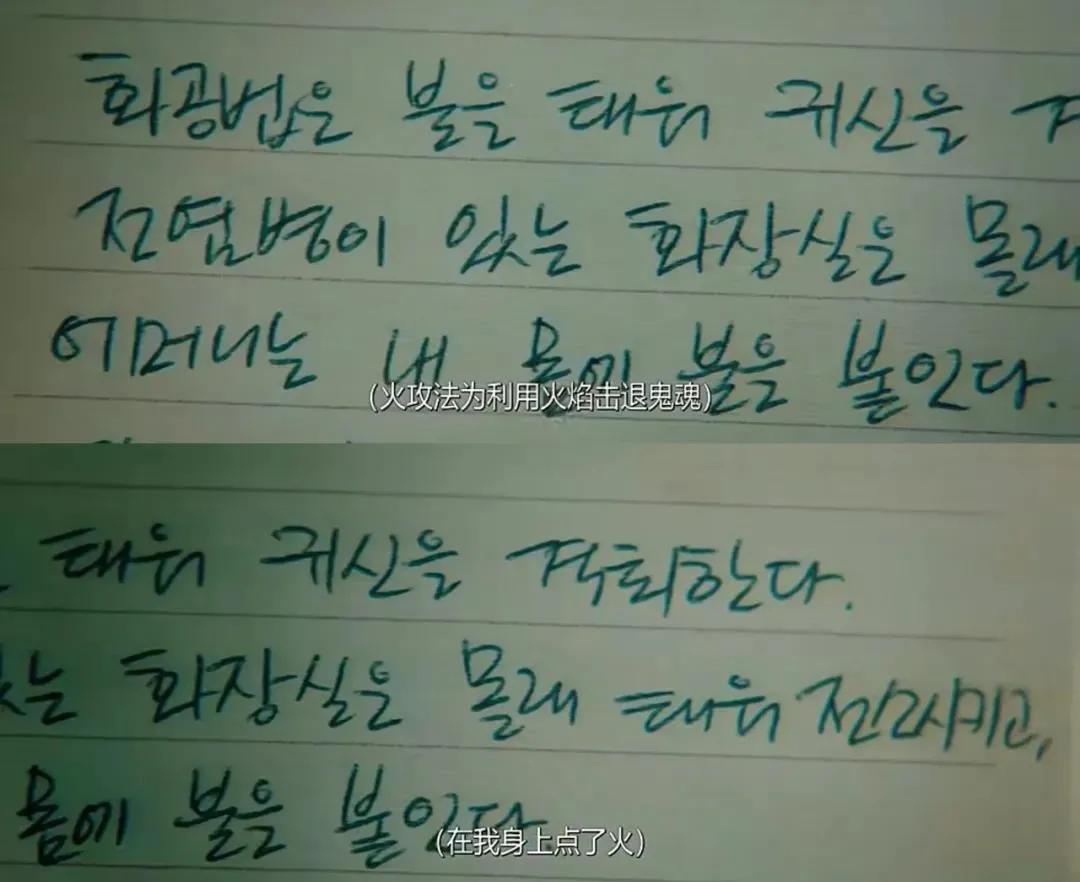 화공법은 불을 태워 귀신을
전염병이 있는 화장실은 몰래
어머니는 내 몸에 불을 붙인다.
(火攻法为利用火焰击退鬼魂)
태워 귀신을 격퇴한다.
는 화장실은 몰래 태워 전소시키고,
몸에 불을 붙인다
(在我身上点了火)